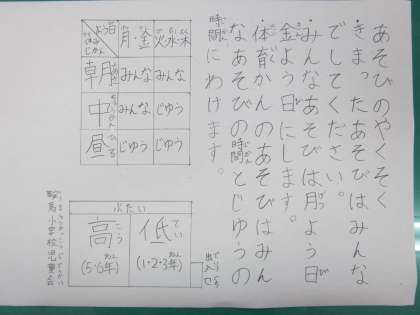 あそびのやくそく
・きまったあそびはみんな
でしてください。
・みんなあそびは月よう日
金よう日にします。
・体育かんのあそびはみん
なあそびの時間とじゆうの
時間にわけます。
よう日 月・金 火・水・木
じかん
朝 みんな みんな
中 みんな じゆう
昼 じゆう じゆう
ぶたい
高 低
(5・6年) (1・2・3年)
小学校児童会